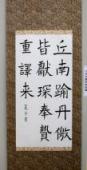 丘南踰丹徼
皆獻琛奉贄
重譯来